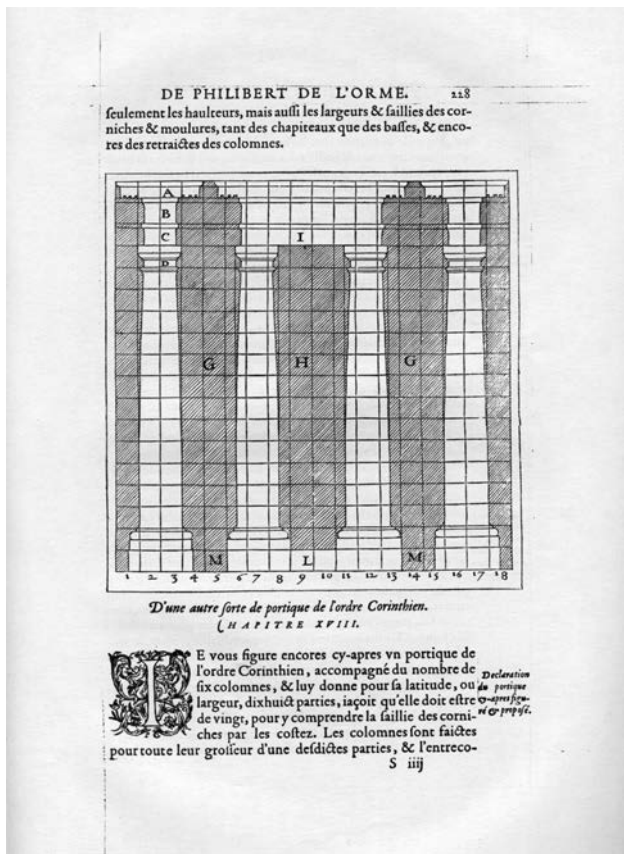 DE PHILIBERT DE L'ORME. 228
ſeulement les haulteurs, mais auſſi les largeurs & ſaillies des cor-
niches & moulures, tant des chapiteaux que des baſſes, & enco-
res des retraictes des colomnes.
A
B
C I
D
G H G
M L M
1 2 3 4 5 6 7 8 9 10 11 12 13 14 15 16 17 18
D'une autre ſorte de portique de l'ordre Corinthien.
CHAPITRE XVIII.
IE vous figure encores cy-apres vn portique de
l'ordre Corinthien, accompagné du nombre de
ſix colomnes, & luy donne pour ſa latitude, ou
largeur, dixhuict parties, iaçoit qu'elle doit eſtre
de vingt, pour y comprendre la ſaillie des corni-
ches par les coſtez. Les colomnes ſont faictes
pour toute leur groſſeur d'une deſdictes parties, & l'entreco-
Declaration
du portique
cy-apres figu-
ré & propoſé.
S iiij